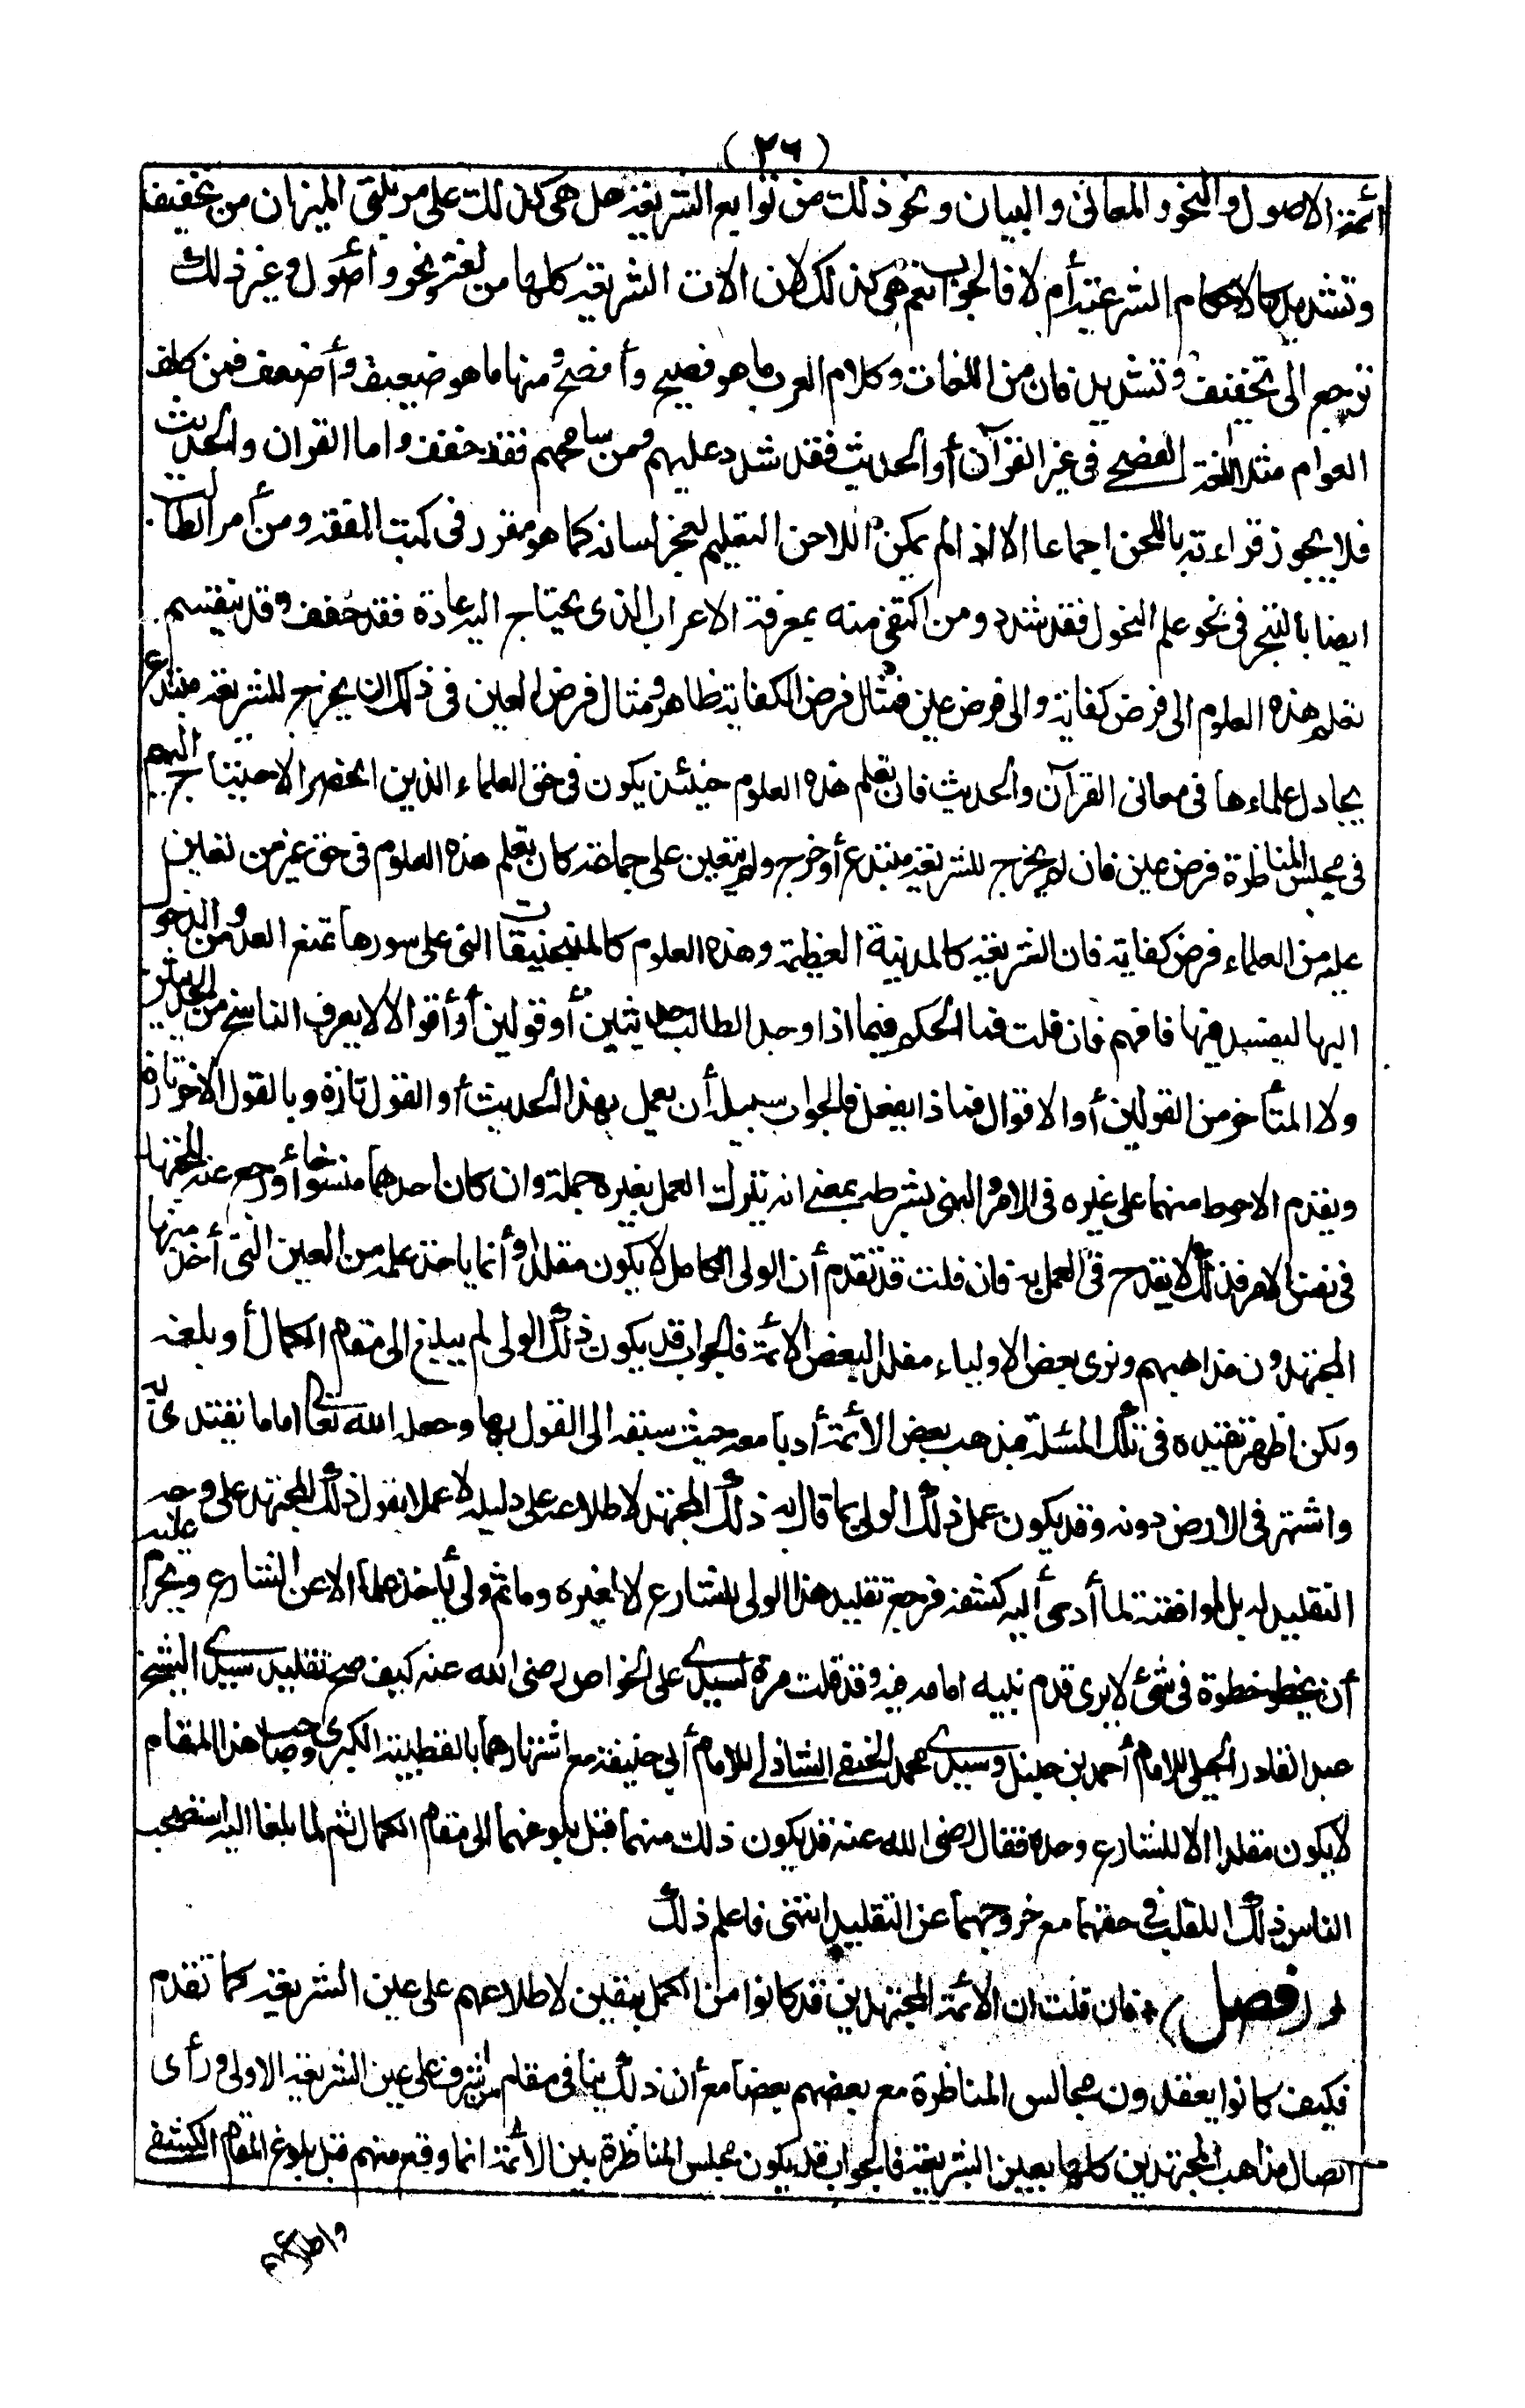 (٢٦)
ائمة الاصول والنحو والمعانى والبيان ونحو ذلك من توابع الشريعة هل هى كذلك على مرتبتى الميزان من تخفيف
وتشديد كالاحكام الشرعية أم لا فالجواب نعم هى كذلك لان الات الشريعة كلها من لغة ونحو وأصول وغير ذلك
ترجع الى تخفيف وتشديد فان من اللغات وكلام العرب ما هو فصيح وأفصح ومنها ما هو ضعيف وأضعف فمن كلف
العوام مثلا اللغة الفصحى فى غير القرآن أو الحديث فقد شدد عليهم ومن سامحهم فقد خفف واما القران والحديث
فلا يجوز قراءته باللحن اجماعا الا اذا لم يمكن اللاحن التعليم لعجز لسانه كما هو مقرر فى كتب الفقه ومن أمر الطالب
ايضا بالتبحر فى نحو علم النحو فقد شدد ومن اكتفى منه بمعرفة الاعراب الذى يحتاج اليه عادة فقد خفف وقد ينقسم
تعلم هذه العلوم الى فرض كفاية والى فرض عين فمثال فرض الكفاية ظاهر ومثال فرض العين فى ذلك ان يخرج للشريعة مبتدع
يجادل علماءها فى معانى القرآن والحديث فان تعلم هذه العلوم حينئذ يكون فى حق العلماء الذين انحصر الاحتياج اليهم
فى مجلس المناظرة فرض عين فان لم يخرج للشريعة مبتدع أو خرج ولم يتعين على جماعة كان تعلم هذه العلوم فى حق غير من تعين
عليه من العلماء فرض كفاية فان الشريعة كالمدينة العظيمة وهذه العلوم كالمنجنيقات التى على سورها تمنع العدو من الدخول
اليها ليفسد فيها فافهم فان قلت فما الحكم فيما اذا وجد الطالب حديثين أو قولين أو أقوالا لا يعرف الناسخ من الحديثين
ولا المتأخر من القولين أو الاقوال فماذا يفعل فالجواب سبيله أن يعمل بهذا الحديث أو القول تارة وبالقول الاخر تارة
ويقدم الاحوط منهما على غيره فى الامر والنهى بشرطه بمعنى انه يترك العمل بغيره جملة وان كان احدهما منسوخا أو رجع عنه المجتهد
فى نفس الامر فذلك لا يقدح فى العمل به فان قلت قد تقدم أن الولى الكامل لا يكون مقلدا وأنما ياخذ علمه من العين التى أخذ منها
المجتهدون مذاهبهم ونرى بعض الاولياء مقلدا لبعض الائمة فالجواب قد يكون ذلك الولى لم يبلغ الى مقام الكمال أو بلغه
ولكن اظهر تقيده فى تلك المسئلة بمذهب بعض الائمة أدبا معه حيث سبقه الى القول بها وجعله الله تعالى اماما يقتدى به
واشتهر فى الارض دونه وقد يكون عمل ذلك الولى بما قال به ذلك المجتهد لاطلاعه على دليله لا عملا بقول ذلك المجتهد على وجه
التقليد له بل لموافقته لما أدى أليه كشفه فرجع تقليد هذا الولى للشارع لا لغيره وما ثم ولى يأخذ علما الا عن الشارع ويحرم عليه
أن يخطو خطوة فى شئ لا يرى قدم نبيه امامه فيه وقد قلت مرة لسيدى على الخواص رضى الله عنه كيف صح تقليد سيدى الشيخ
عبد القادر الجيلى للامام أحمد بن حنبل وسيدى محمد الحنفى الشاذلى للامام أبى حنيفة مع اشتهارهما بالقطبية الكبرى وصاحب هذا المقام
لا يكون مقلدا الا للشارع وحده فقال رضى الله عنه قد يكون ذلك منهما قبل بلوغهما الى مقام الكمال ثم لما بلغا اليه استصحب
الناس ذلك اللقب فى حقهما مع خروجهما عن التقليد انتهى فاعلم ذلك
(فصل) فان قلت ان الائمة المجتهدين قد كانوا من الكمل بيقين لاطلاعهم على عين الشريعة كما تقدم
فكيف كانوا يعقدون مجالس المناظرة مع بعضهم بعضا مع أن ذلك ينافى مقام من أشرف على عين الشريعة الاولى ورأى
اتصال مذاهب المجتهدين كلها بعين الشريعة فالجواب قد يكون مجلس المناظرة بين الائمة انما وقع منهم قبل بلوغ المقام الكشفى
واطلاعهم